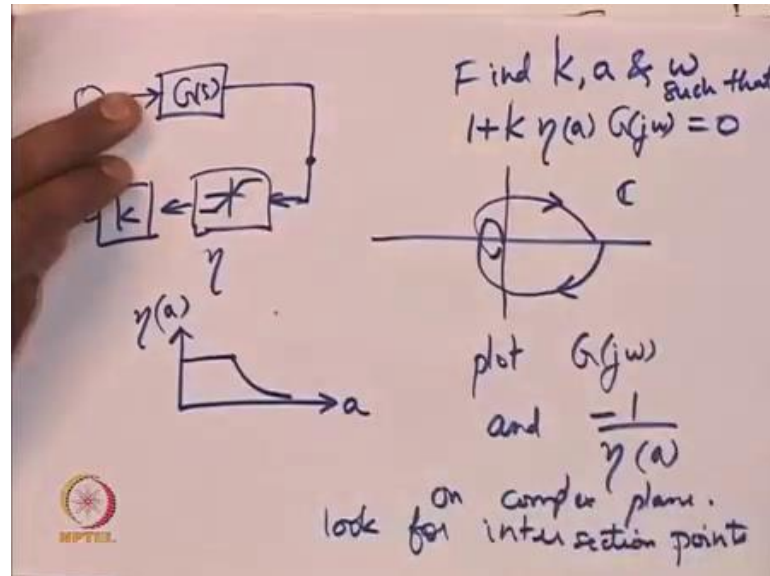 G(s)
k
η
η(a)
a
Find k, a & ω
such that
1+k η(a) G(jω) = 0
ℂ
plot G(jω)
and -1/η(a)
on complex plane.
look for intersection points
NPTEL